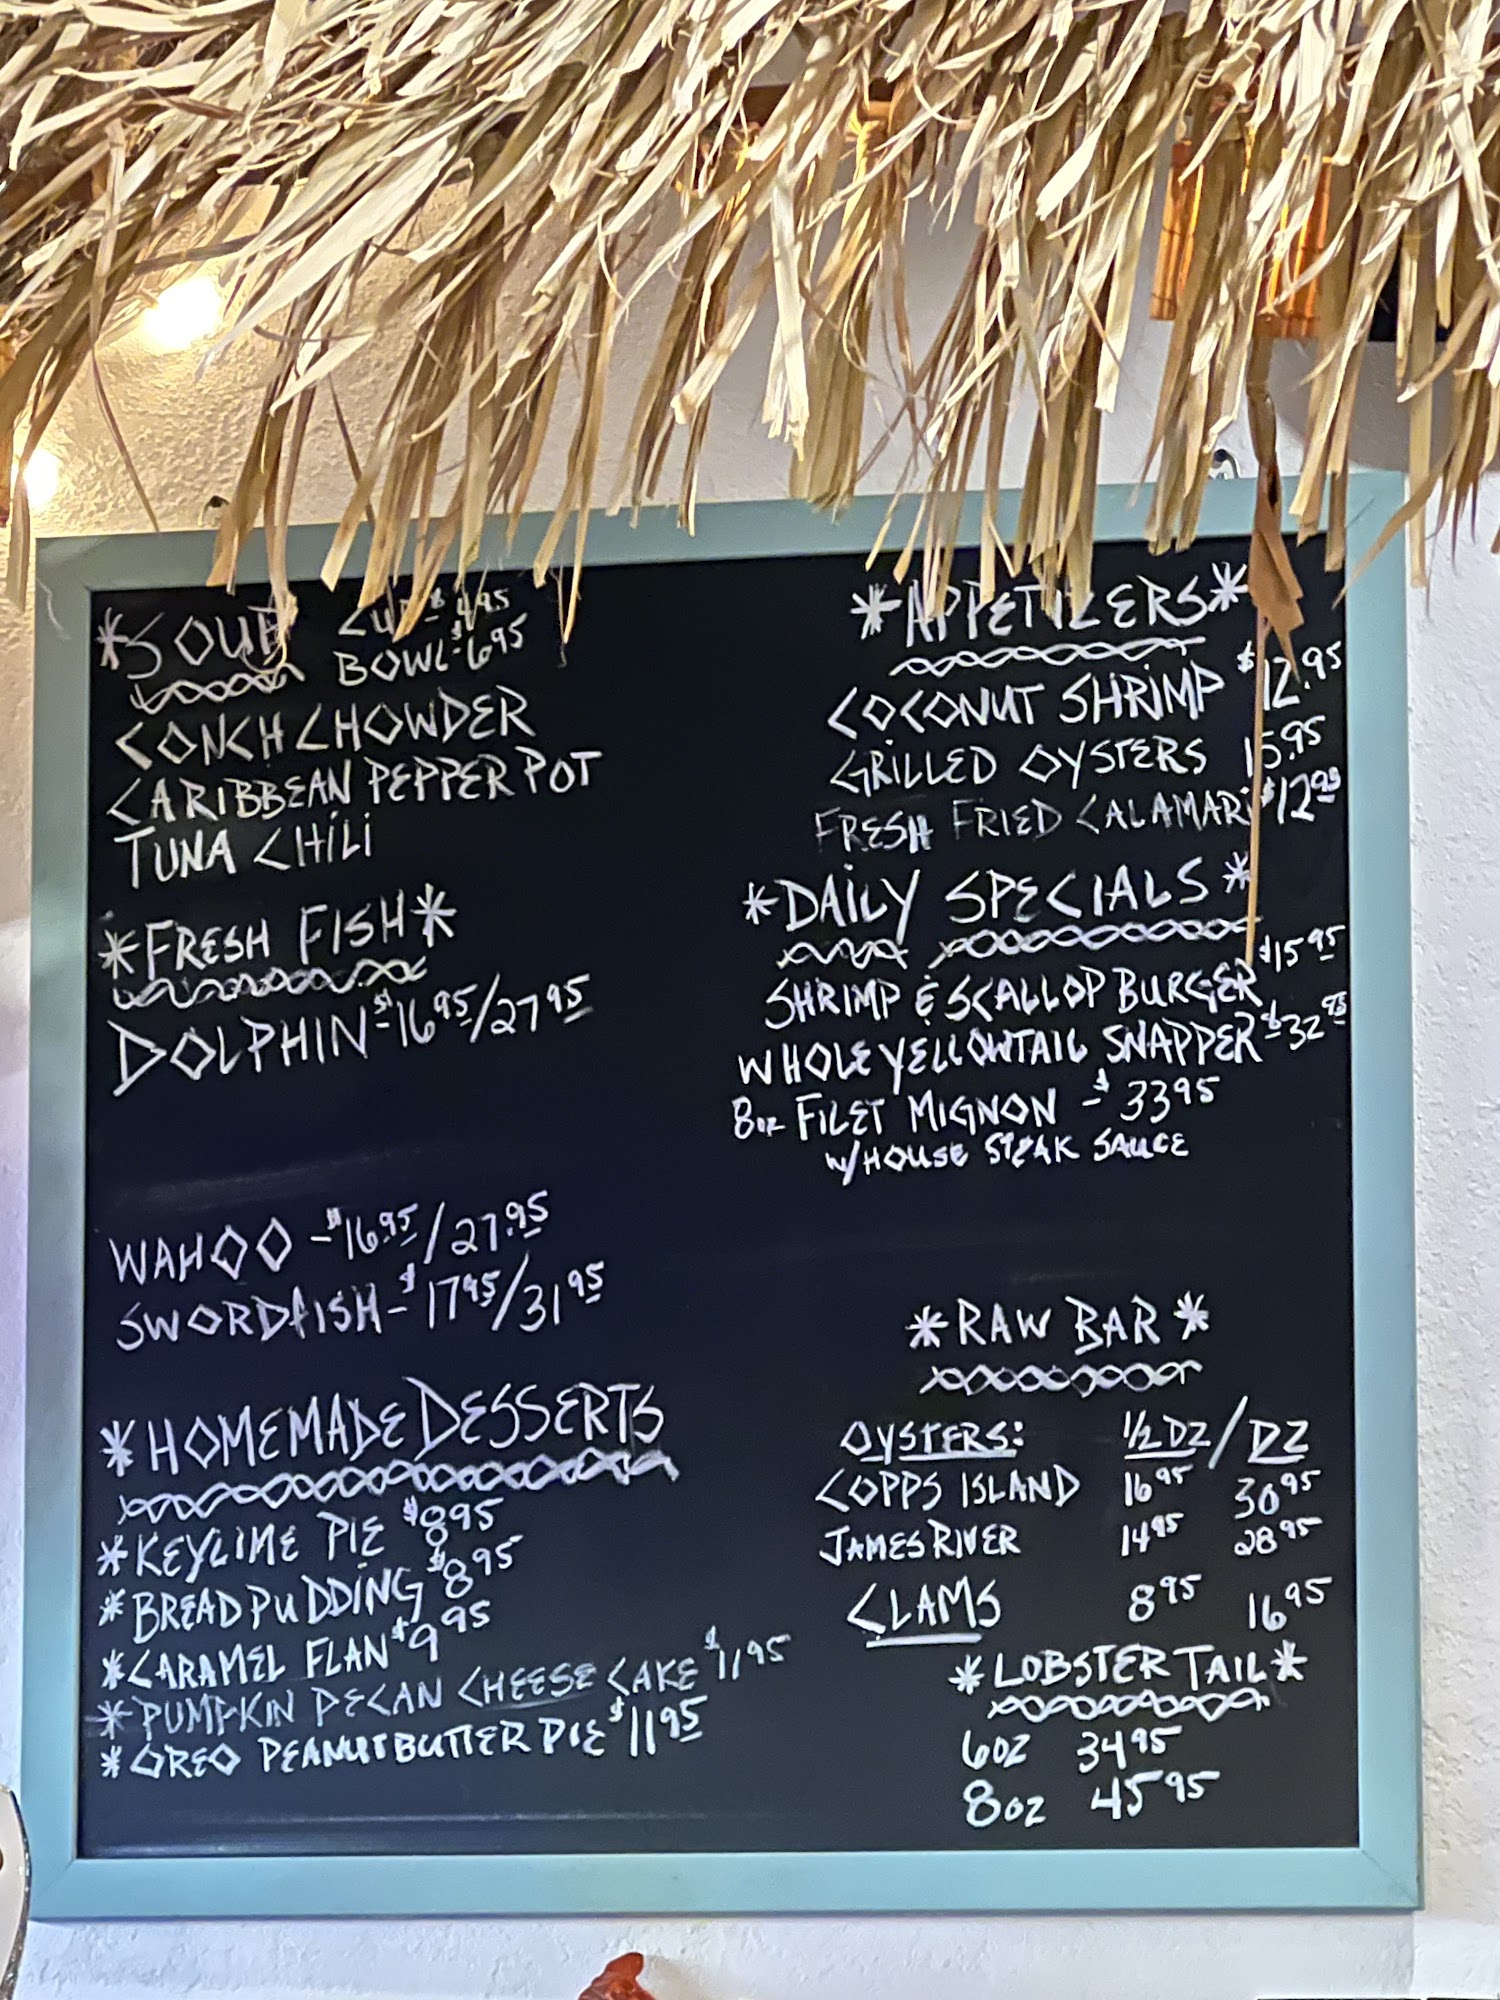 *SOUP CUP-$4.95
BOWL-$6.95
CONCH CHOWDER
CARIBBEAN PEPPER POT
TUNA CHILI
*FRESH FISH*
DOLPHIN-$16.95/27.95
WAHOO -$16.95/27.95
SWORDFISH-$17.95/31.95
*HOMEMADE DESSERTS
*KEYLIME PIE $8.95
*BREAD PUDDING $8.95
*CARAMEL FLAN $9.95
*PUMPKIN PECAN CHEESE CAKE $11.95
*OREO PEANUT BUTTER PIE $11.95
*APPETIZERS*
COCONUT SHRIMP $12.95
GRILLED OYSTERS 15.95
FRESH FRIED CALAMARI $12.95
*DAILY SPECIALS*
SHRIMP & SCALLOP BURGER $15.95
WHOLE YELLOWTAIL SNAPPER $32.95
8oz FILET MIGNON -$33.95
W/HOUSE STEAK SAUCE
*RAW BAR*
OYSTERS: 1/2 DZ / DZ
COPPS ISLAND 16.95 30.95
JAMES RIVER 14.95 28.95
CLAMS 8.95 16.95
*LOBSTER TAIL*
6oz 34.95
8oz 45.95